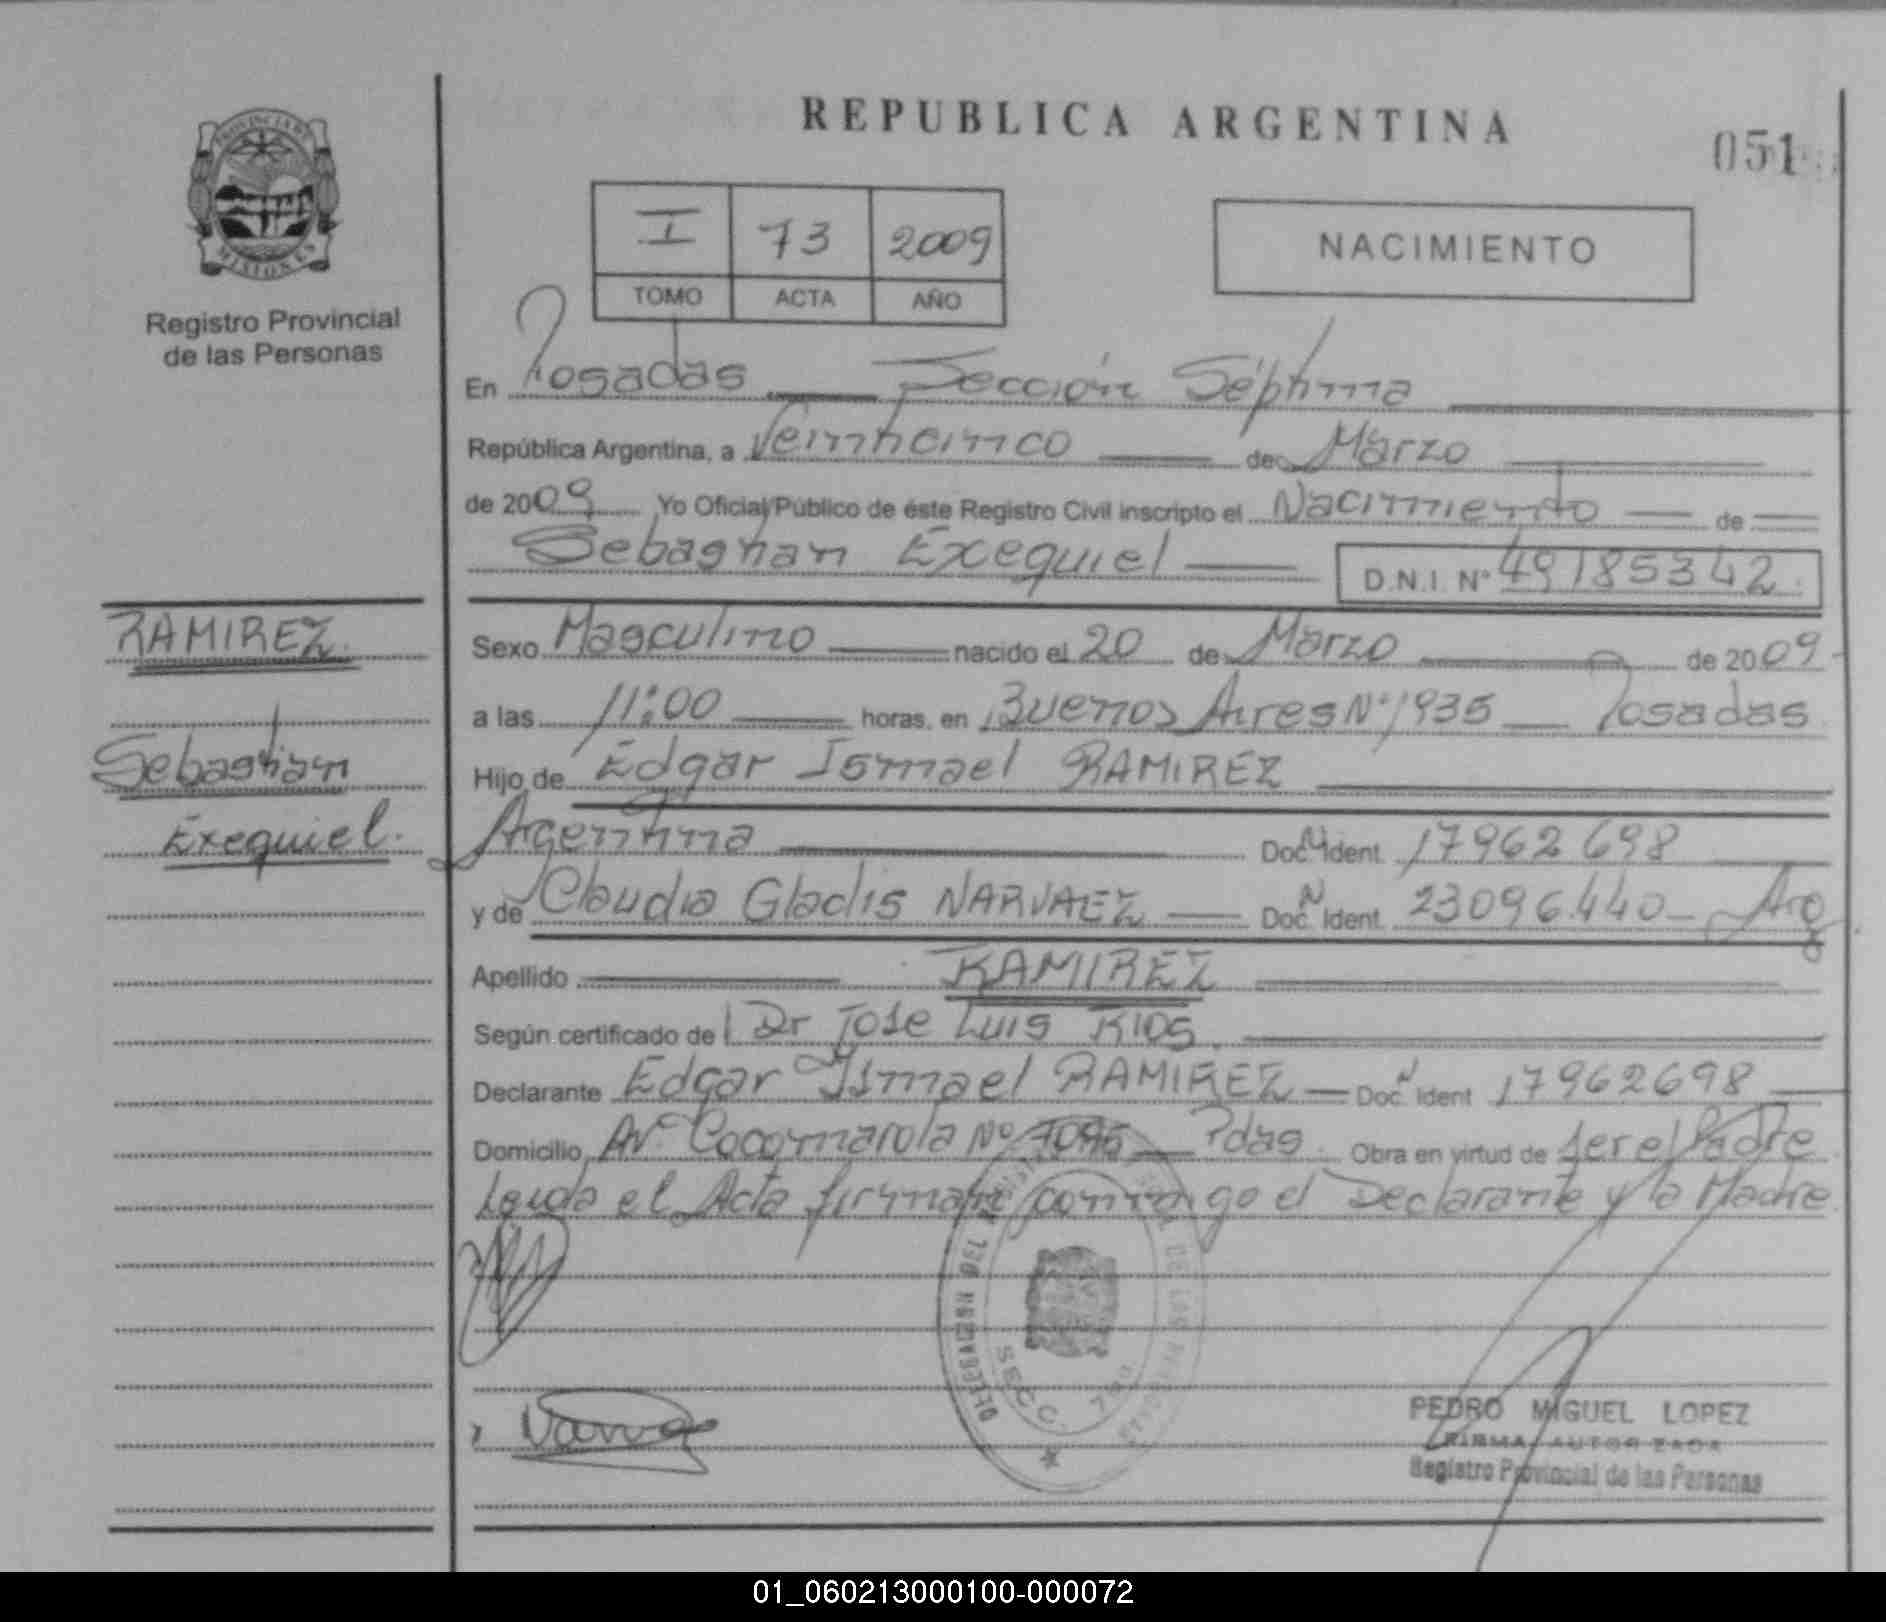 PROVINCIA DE
MISIONES
Registro Provincial
de las Personas
REPUBLICA ARGENTINA
051
I 73 2009
TOMO ACTA AÑO
NACIMIENTO
En Posadas Sección Séptima
República Argentina, a Veinticinco de Marzo
de 2009 Yo Oficial Público de éste Registro Civil inscripto el Nacimiento de
Sebastian Exequiel D.N.I. Nº 49185342.
RAMIREZ.
Sebastian
Exequiel.
Sexo Masculino nacido el 20 de Marzo de 2009
a las 11:00 horas, en Buenos Aires Nº 1935 Posadas
Hijo de Edgar Ismael RAMIREZ
Argentina Doc. Ident. 17962698
y de Claudia Gladis NARVAEZ Doc. Ident. 23096.440 Arg
Apellido RAMIREZ
Según certificado de Dr Jose Luis RIOS
Declarante Edgar Ismael RAMIREZ Doc. Ident 17962698
Domicilio Avº Cocomarola Nº Pdas. Obra en virtud de ser el Padre
Leida el Acta firman conmigo el Declarante y la Madre
DELEGACION DEL DE LAS
SECC. 7
PEDRO MIGUEL LOPEZ
FIRMA AUTORIZADA
Registro Provincial de las Personas
01_060213000100-000072